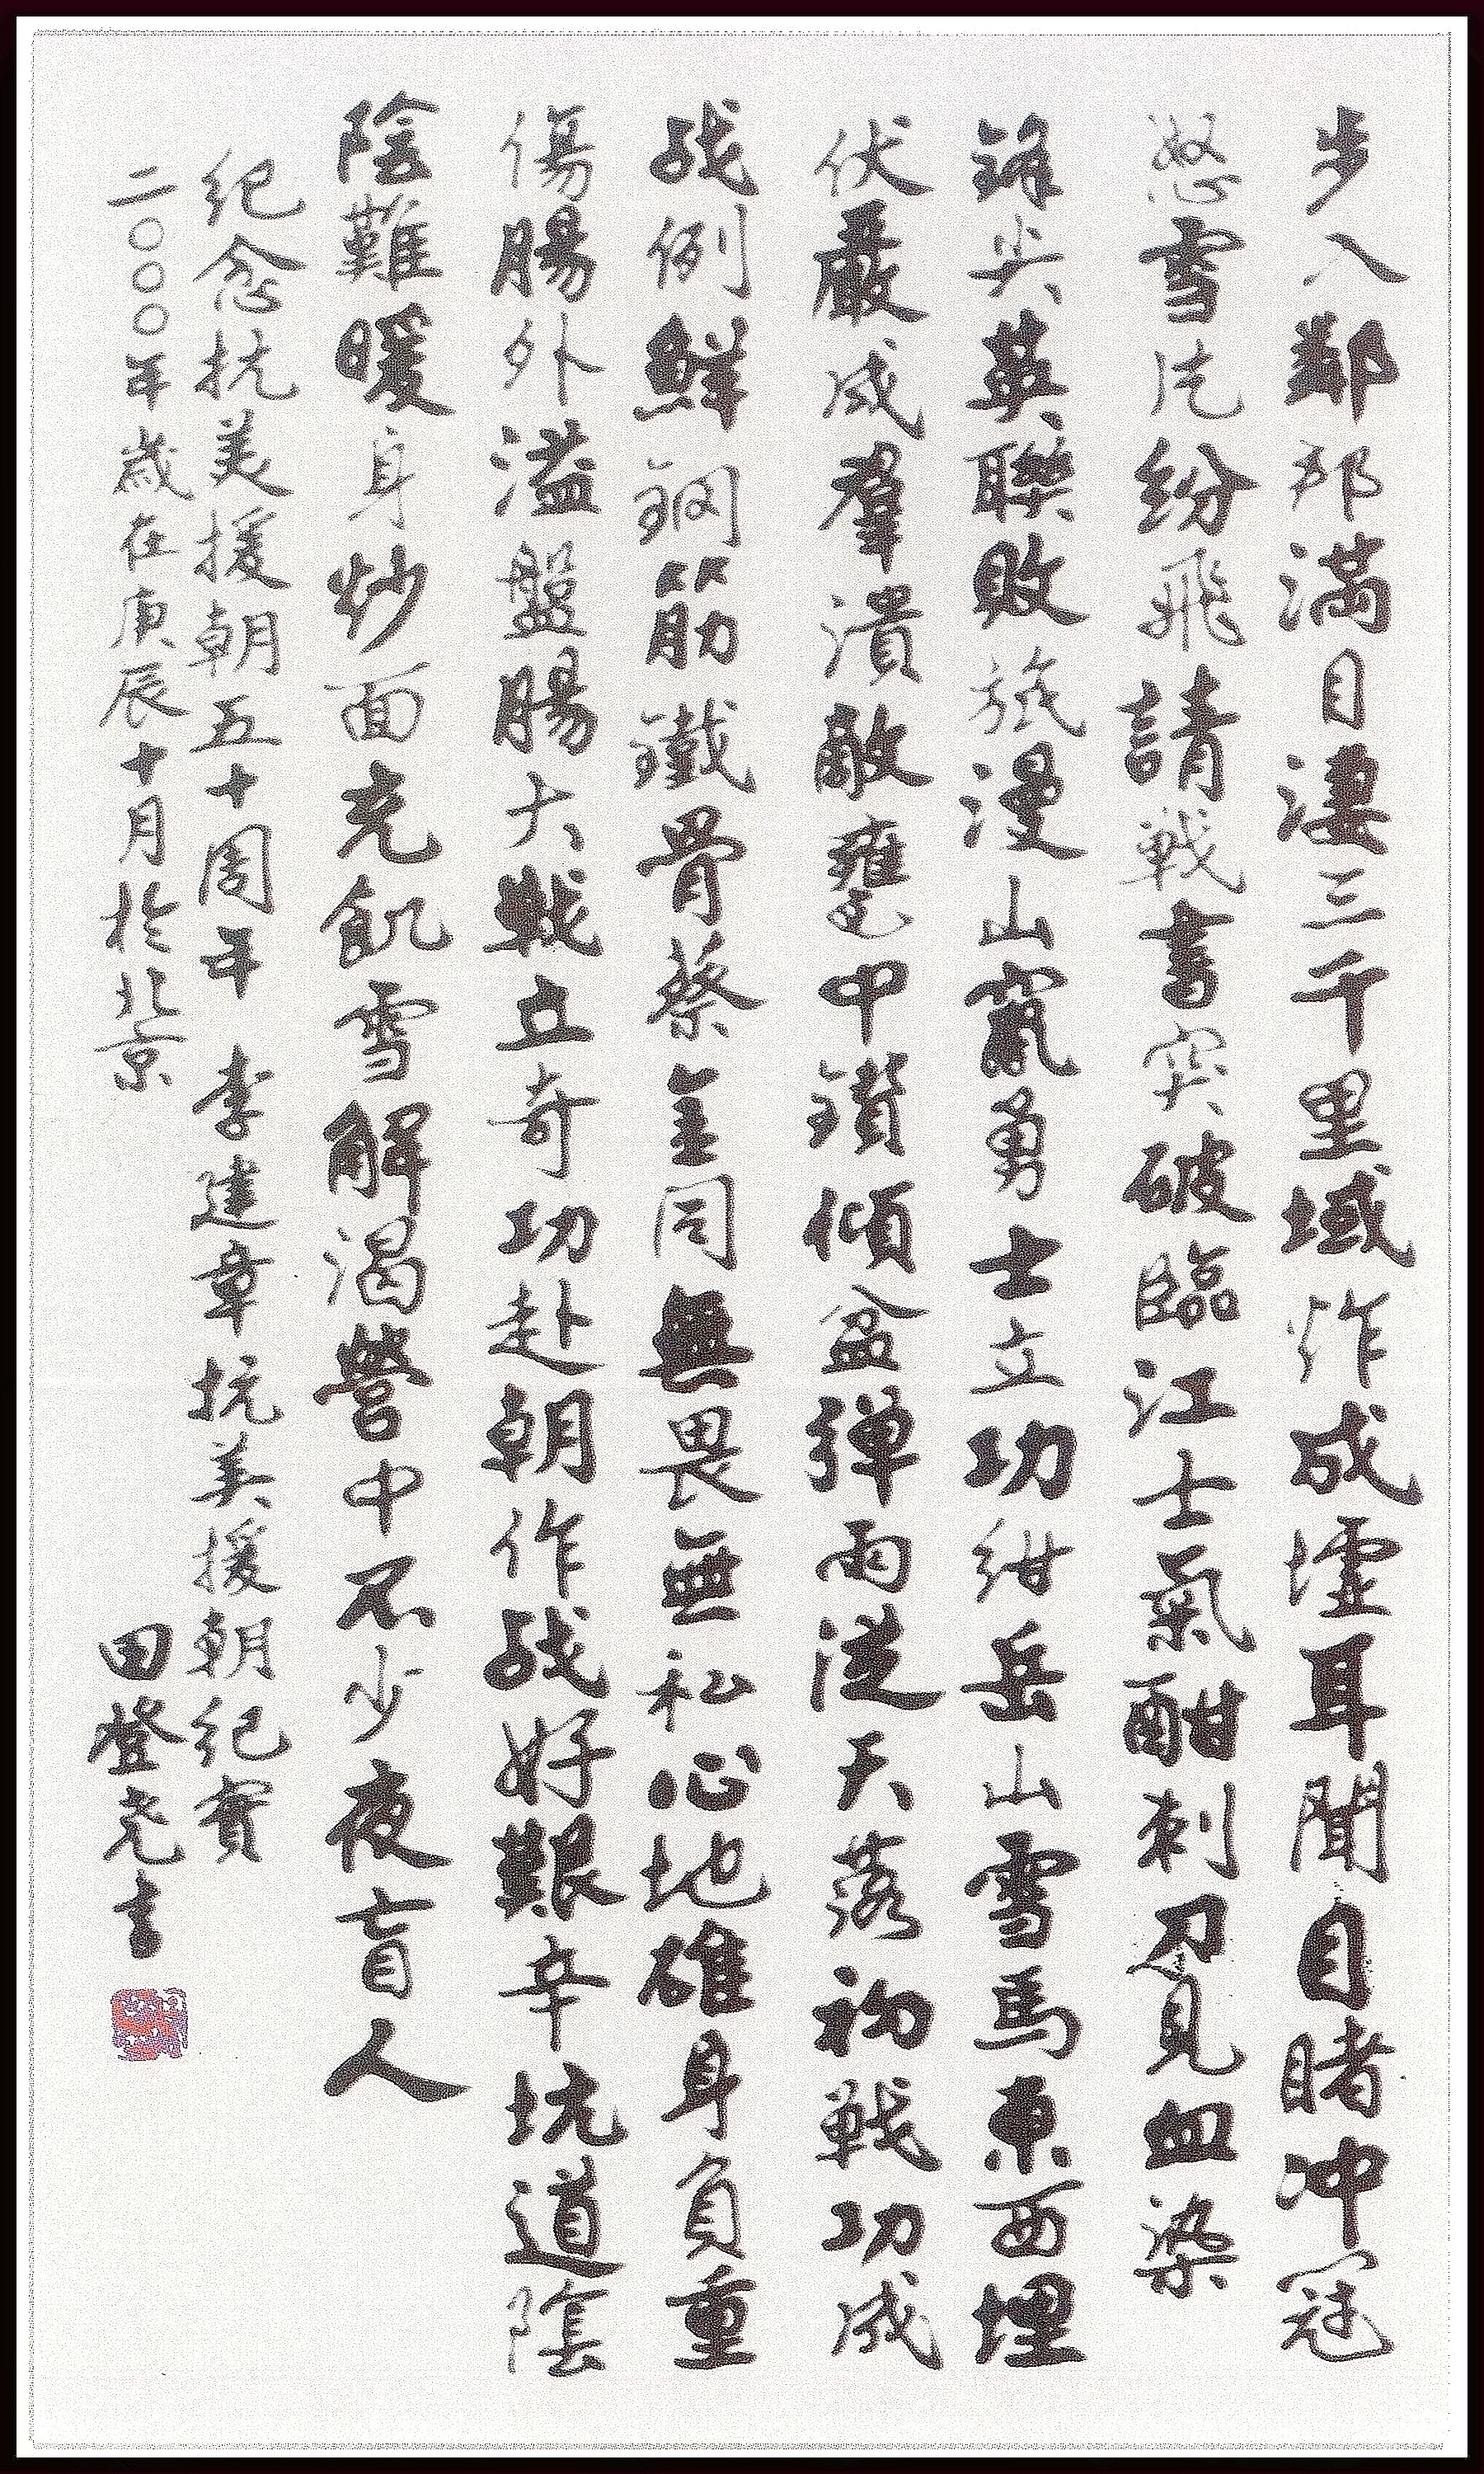 步入鄰邦滿目淒三千里域炸成墟耳聞目睹冲冠
怒雪片紛飛請戰書突破臨江士氣酣刺刀見血染
鋒尖英聯敗旅漫山竄勇士立功紺岳山雪馬東西埋
伏嚴成羣潰敵甕中鑽傾盆弹雨從天落初戰功成
战例鮮鋼筋鐵骨蔡金同無畏無私心地確身負重
傷腸外溢盤腸大戰立奇功赴朝作战好艱辛坑道陰
陰難暖身炒面充飢雪解渴營中不少夜盲人
纪念抗美援朝五十周年 李建章抗美援朝纪實
二〇〇〇年歲在庚辰十月於北京 田登尧書